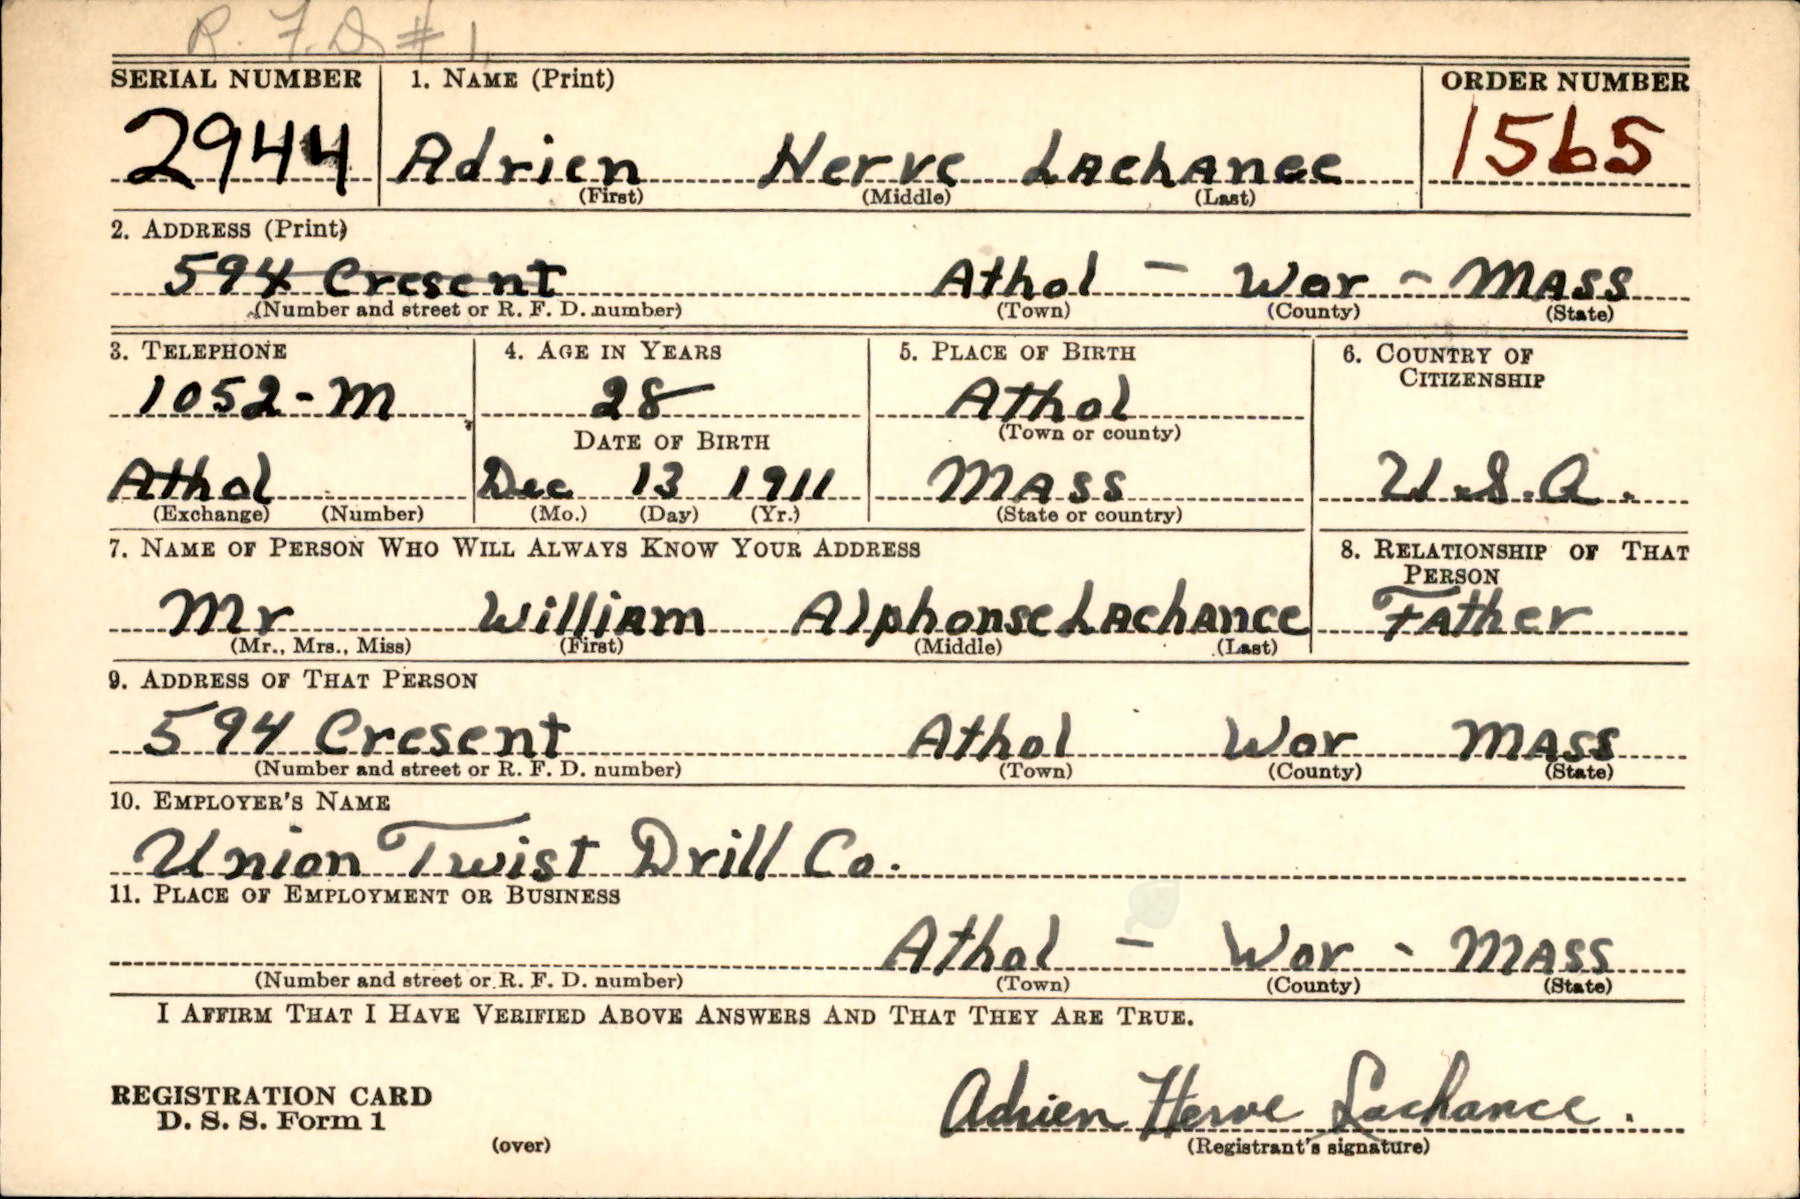 R. F. D. # 1
SERIAL NUMBER 1. NAME (Print) ORDER NUMBER
2944 Adrien Herve Lachance 1565
(First) (Middle) (Last)
2. ADDRESS (Print)
594 Cresent Athol - Wor - Mass
(Number and street or R. F. D. number) (Town) (County) (State)
3. TELEPHONE 4. AGE IN YEARS 5. PLACE OF BIRTH 6. COUNTRY OF
CITIZENSHIP
1052-M 28 Athol
DATE OF BIRTH (Town or county)
Athol Dec 13 1911 Mass U.S.A.
(Exchange) (Number) (Mo.) (Day) (Yr.) (State or country)
7. NAME OF PERSON WHO WILL ALWAYS KNOW YOUR ADDRESS 8. RELATIONSHIP OF THAT
PERSON
Mr William Alphonse Lachance Father
(Mr., Mrs., Miss) (First) (Middle) (Last)
9. ADDRESS OF THAT PERSON
594 Cresent Athol Wor Mass
(Number and street or R. F. D. number) (Town) (County) (State)
10. EMPLOYER'S NAME
Union Twist Drill Co.
11. PLACE OF EMPLOYMENT OR BUSINESS
Athol - Wor - Mass
(Number and street or R. F. D. number) (Town) (County) (State)
I AFFIRM THAT I HAVE VERIFIED ABOVE ANSWERS AND THAT THEY ARE TRUE.
REGISTRATION CARD
D. S. S. Form 1
Adrien Herve Lachance.
(over) (Registrant's signature)